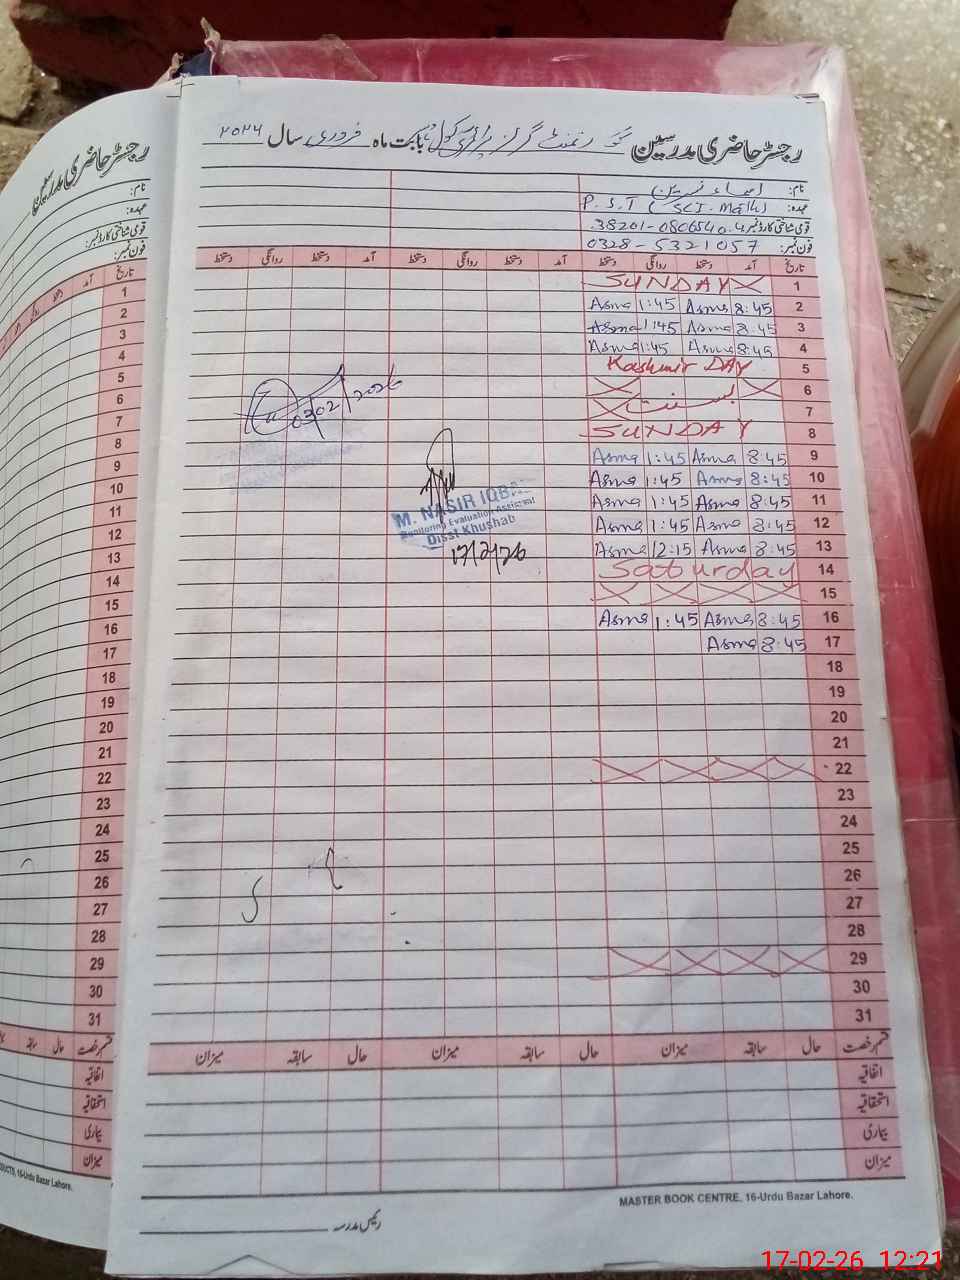 رجسٹر حاضری مدرسین گورنمنٹ گرلز پرائمری سکول بابت ماہ فروری سال ۲۰۲۶
نام: اسماء نسرین
عہدہ: P.S.T (SCI-Math)
قومی شناختی کارڈ نمبر: 38201-0806540-4
فون نمبر: 0328-5321057
تاریخ آمد دستخط روانگی دستخط آمد دستخط روانگی دستخط آمد دستخط روانگی دستخط
1 SUNDAY
2 8:45 Asma 1:45 Asma
3 8:45 Asma 1:45 Asma
4 8:45 Asma 1:45 Asma
5 Kashmir DAY
6
7 بسنت
8 SUNDAY
9 8:45 Asma 1:45 Asma
10 8:45 Asma 1:45 Asma
11 8:45 Asma 1:45 Asma
12 8:45 Asma 1:45 Asma
13 8:45 Asma 12:15 Asma
14 Saturday
15
16 8:45 Asma 1:45 Asma
17 8:45 Asma
18
19
20
21
22
23
24
25
26
27
28
29
30
31
03/02/2026
M. NASIR IQBAL
Monitoring Evaluation Assistant
Disst Khushab
17/2/26
قسم رخصت حال سابقہ میزان حال سابقہ میزان حال سابقہ میزان
اتفاقیہ
استحقاقیہ
بیماری
میزان
MASTER BOOK CENTRE, 16-Urdu Bazar Lahore.
رئیس مدرسہ
رجسٹر حاضری مدرسین
نام:
عہدہ:
قومی شناختی کارڈ نمبر:
فون نمبر:
تاریخ آمد دستخط روانگی
1
2
3
4
5
6
7
8
9
10
11
12
13
14
15
16
17
18
19
20
21
22
23
24
25
26
27
28
29
30
31
قسم رخصت حال سابقہ
اتفاقیہ
استحقاقیہ
بیماری
میزان
16-Urdu Bazar Lahore.
17-02-26 12:21